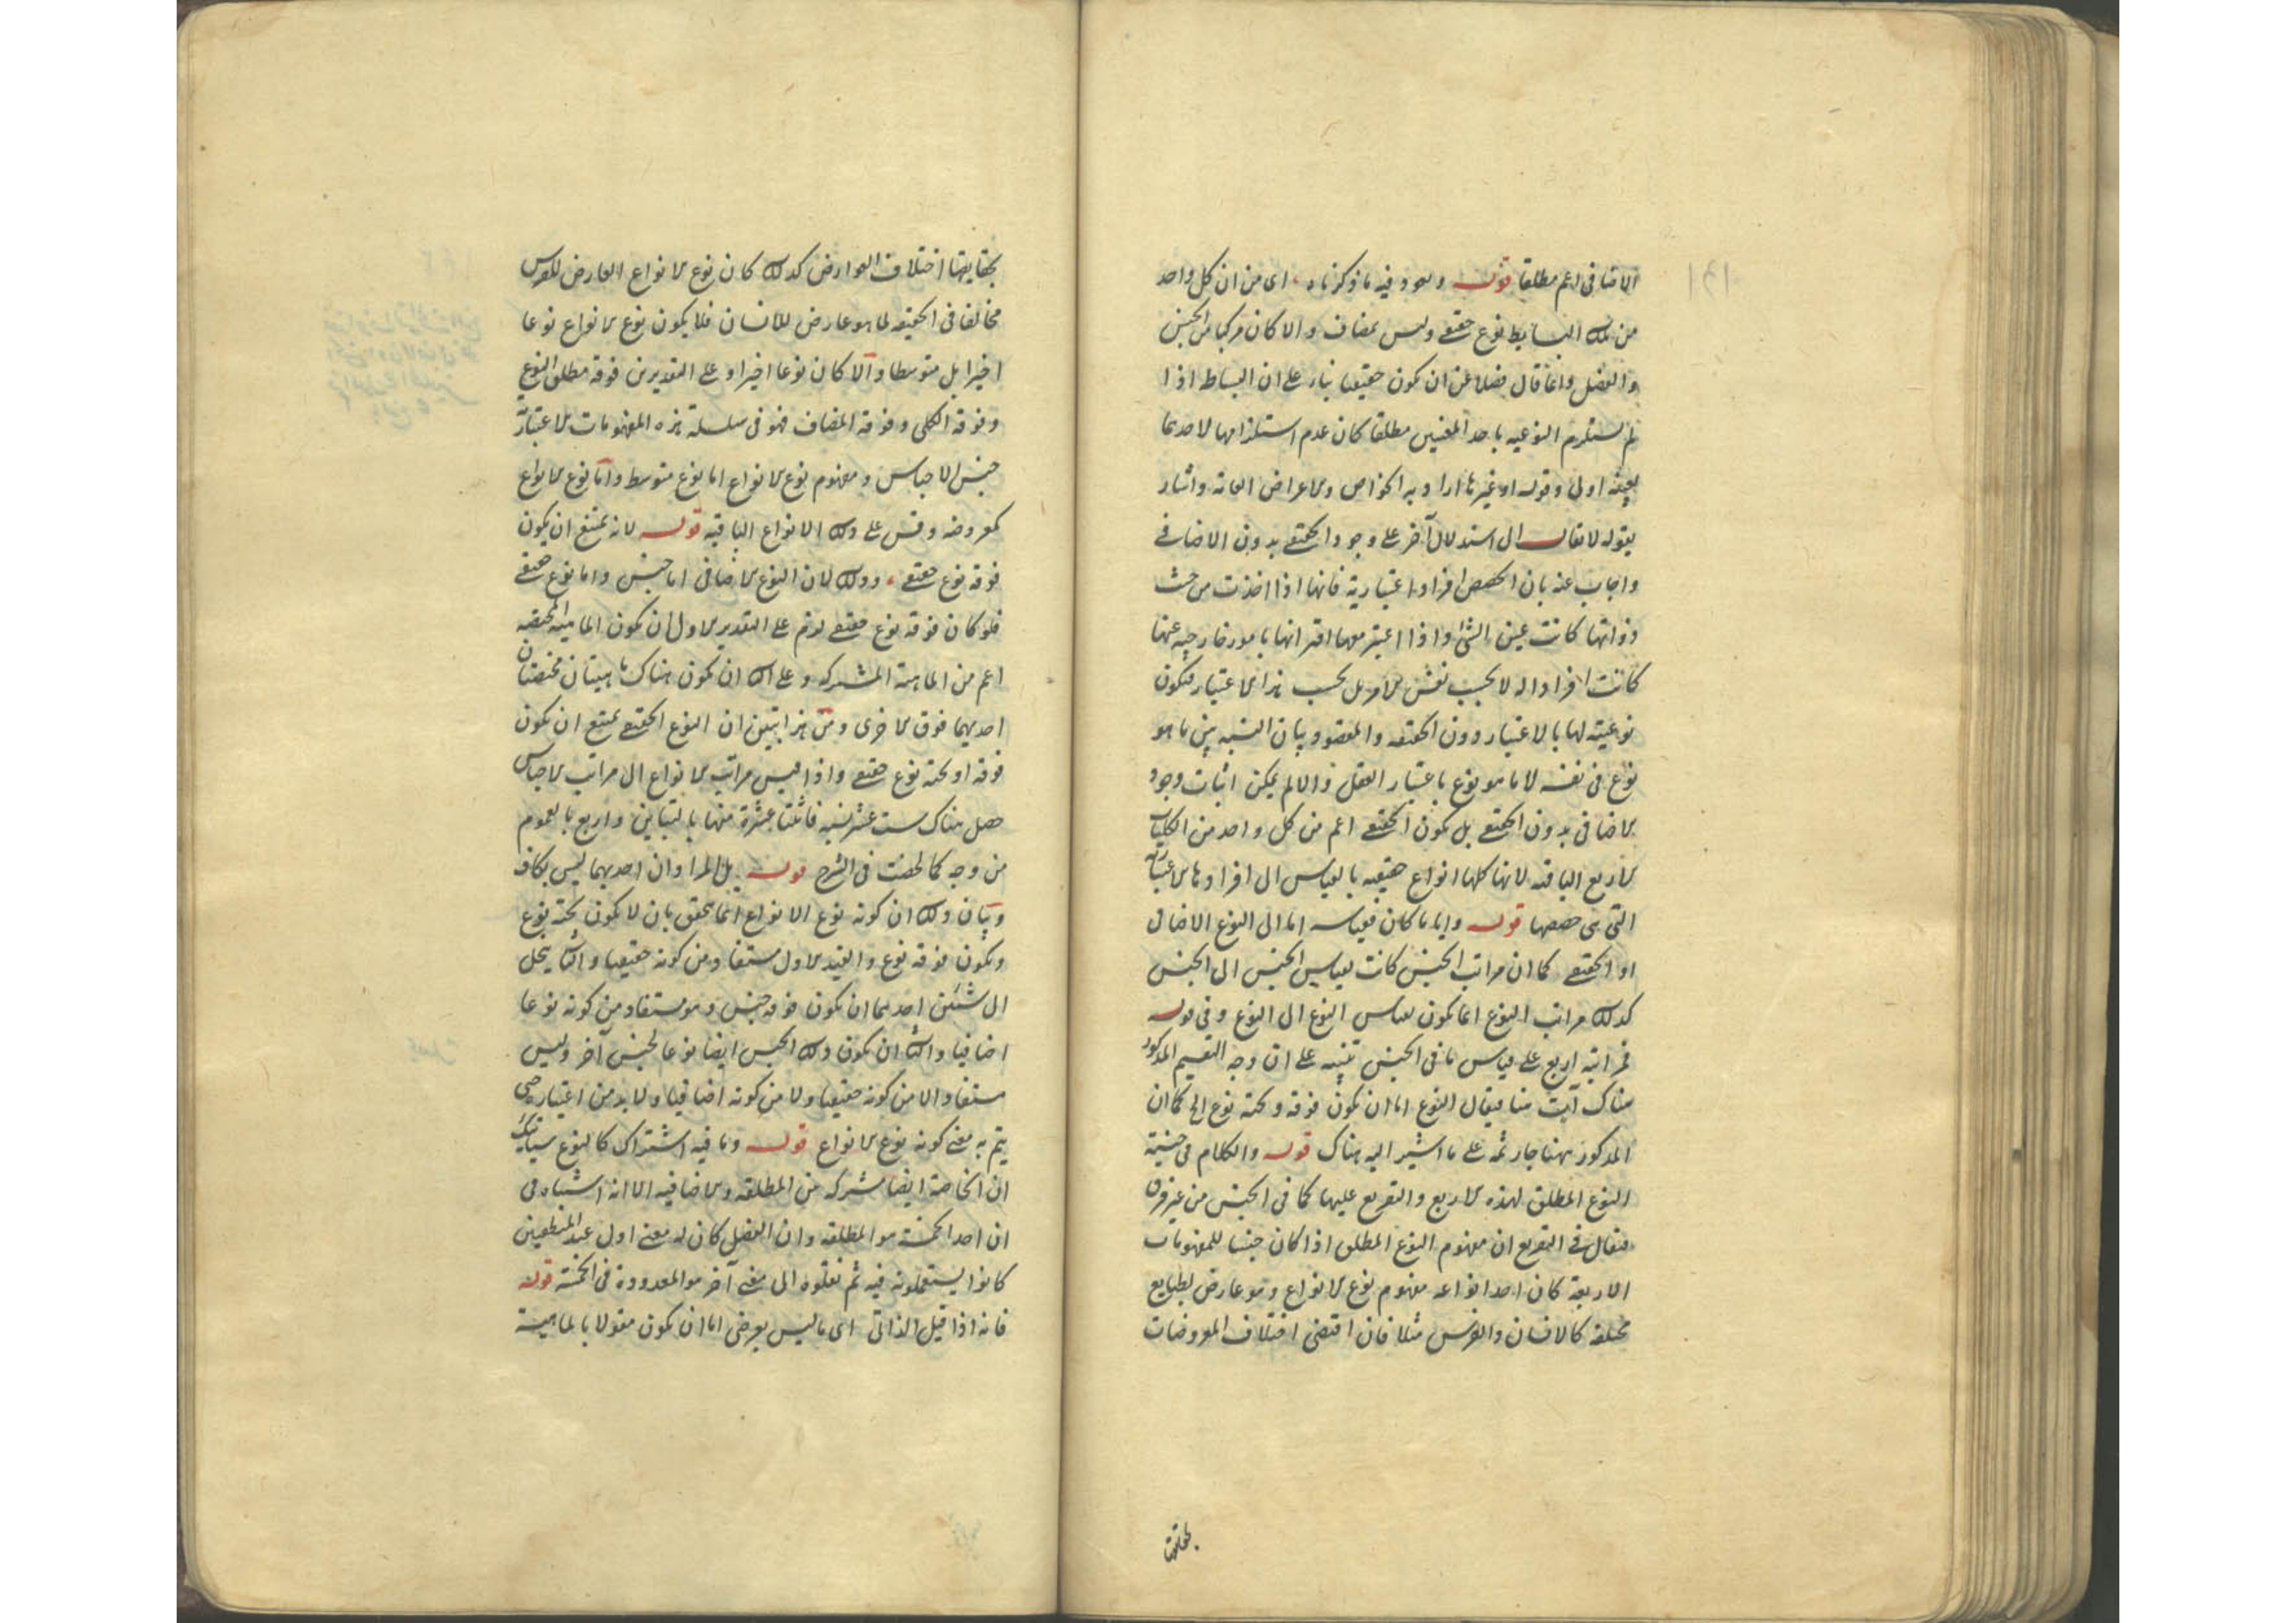 الاضافى اعم مطلقا قوله وهو وفيه ما ذكرناه، اى من ان كل واحد
من تلك البسايط نوع حقيقى وليس بمضاف والا كان مركبا من الجنس
والفصل وانما قال فضلا عن ان يكون حقيقيا بناء على ان البساط اذا
لم يستلزم النوعيه باحد المعنيين مطلقا كان عدم استلزامها لاحدهما
بعينه اولى وقوله او غيرها اراد به الخواص والاعراض العامة واشار
بقوله لا يقال الى استدلال آخر على وجود الحقيقى بدون الاضافى
واجاب عنه بان الحصص افراد اعتبارية فانها اذا اخذت من حيث
ذواتها كانت عين الشئ واذا اعتبر معها اقترانها بامور خارجيه عنها
كانت افرادا له لا بحسب نفس الامر بل بحسب هذا الاعتبار فتكون
نوعيته لها بالاعتبار دون الحقيقه والمقصود بيان النسبه بين ما هو
نوع فى نفسه لا ما هو نوع باعتبار العقل والا لم يمكن اثبات وجود
الاضافى بدون الحقيقى بل يكون الحقيقى اعم من كل واحد من الكليات
الاربع الباقيه لانها كلها انواع حقيقيه بالقياس الى افرادها الاعتباريه
التى هى حصصها قوله واياما كان فقياسه اما الى النوع الاضافى
او الحقيقى كما ان مراتب الجنس كانت بقياس الجنس الى الجنس
كذلك مراتب النوع انما يكون بقياس النوع الى النوع وفى قوله
فمراتبه اربع على قياس ما فى الجنس تنبيه على ان وجه التقسيم المذكور
هناك آت هنا فيقال النوع اما ان يكون فوقه وتحته نوع الخ كما ان
المذكور ههنا جار ثمه على ما اشير اليه هناك قوله والكلام فى جنسية
النوع المطلق لهذه الاربع والتفريع عليها كما فى الجنس من غير فرق
فيقال فى التفريع ان مفهوم النوع المطلق اذا كان جنسا للمفهومات
الاربعة كان احد انواعه مفهوم نوع الانواع وهو عارض لطبايع
مختلفه كالانسان والفرس مثلا فان اقتضى اختلاف المعروضات
بحقايقها
بحقايقها اختلاف العوارض كذلك كان نوع الانواع العارض للفرس
مخالفا فى الحقيقه لما هو عارض للانسان فلا يكون نوع الانواع نوعا
اخيرا بل متوسطا والا كان نوعا اخيرا وعلى التقديرين فوقه مطلق النوع
وفوقه الكلى وفوقه المضاف فهو فى سلسلة هذه المفهومات الاعتباريه
جنس الاجناس ومفهوم نوع الانواع اما نوع متوسط واما نوع الانواع
كمعروضه وقس على ذلك الانواع الباقيه قوله لانه يمتنع ان يكون
فوقه نوع حقيقى، وذلك لان النوع الاضافى اما جنس واما نوع حقيقى
فلو كان فوقه نوع حقيقى لزم على التقدير الاول ان يكون الماهيه المختصه
اعم من الماهية المشتركه وعلى الثانى ان يكون هناك ماهيتان مختصتان
احديهما فوق الاخرى ومن هذا تبين ان النوع الحقيقى يمتنع ان يكون
فوقه او تحته نوع حقيقى واذا قيس مراتب الانواع الى مراتب الاجناس
حصل هناك ست عشر نسبه فاثنتا عشرة منها بالتباين واربع بالعموم
من وجه كما لخصت فى الشرح قوله بل المراد ان احديهما ليس بكاف
وبيان ذلك ان كونه نوع الانواع انما يتحقق بان لا يكون تحته نوع
ويكون فوقه نوع والقيد الاول مستفاد من كونه حقيقيا والثانى ينحل
الى شيئين احدهما ان يكون فوقه جنس وهو مستفاد من كونه نوعا
اضافيا والثانى ان يكون ذلك الجنس ايضا نوعا لجنس آخر وليس
مستفادا لا من كونه حقيقيا ولا من كونه اضافيا ولا بد من اعتباره حتى
يتم به معنى كونه نوع الانواع قوله وما فيه اشتراك كالنوع سياتيك
ان الخاصة ايضا مشتركه بين المطلقه والاضافيه الا انه اشتباه فى
ان احد الخمسة هو المطلقه وان الفصل كان له معنى اول عند المنطقيين
كانوا يستعملونه فيه ثم نقلوه الى معنى آخر هو المعدودة فى الخمسة قوله
فانه اذا قيل الذاتى اى ما ليس بعرضى اما ان يكون مقولا بالماهية